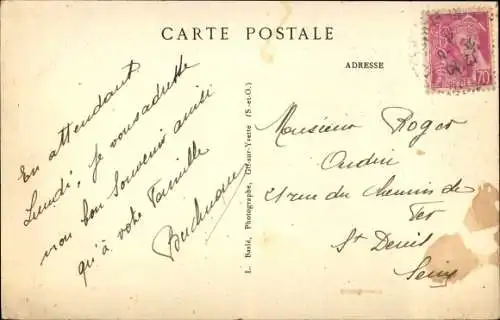 CARTE POSTALE
ADRESSE
En attendant
Lundi, je vous adresse
mon bon souvenir ainsi
qu'à votre famille
L. Baslé, Photographe, Gif-sur-Yvette (S.-et-O.)
Monsieur Roger
Oudin
rue du Chemin de
Fer
St Denis
Seine
70